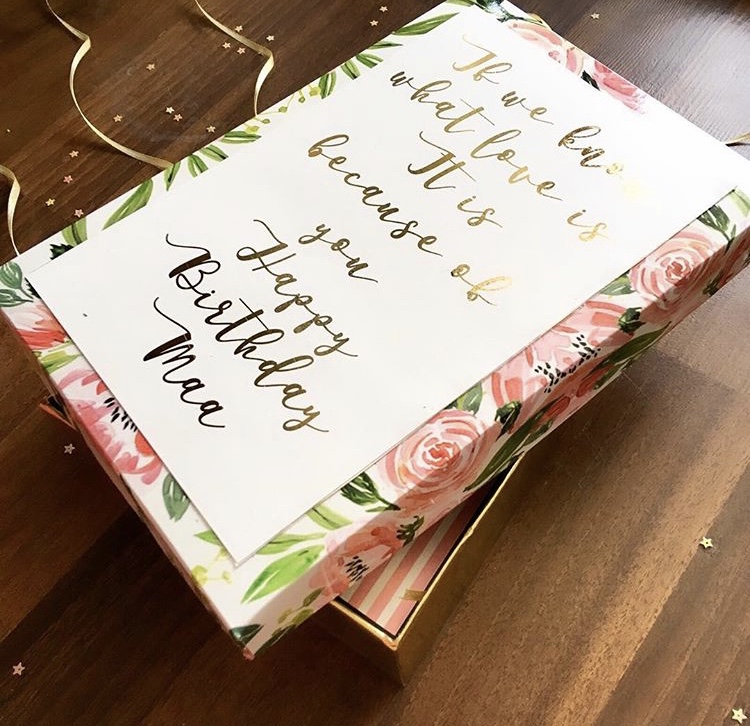 If we know
what love is
It is
because of
you
Happy
Birthday
Maa